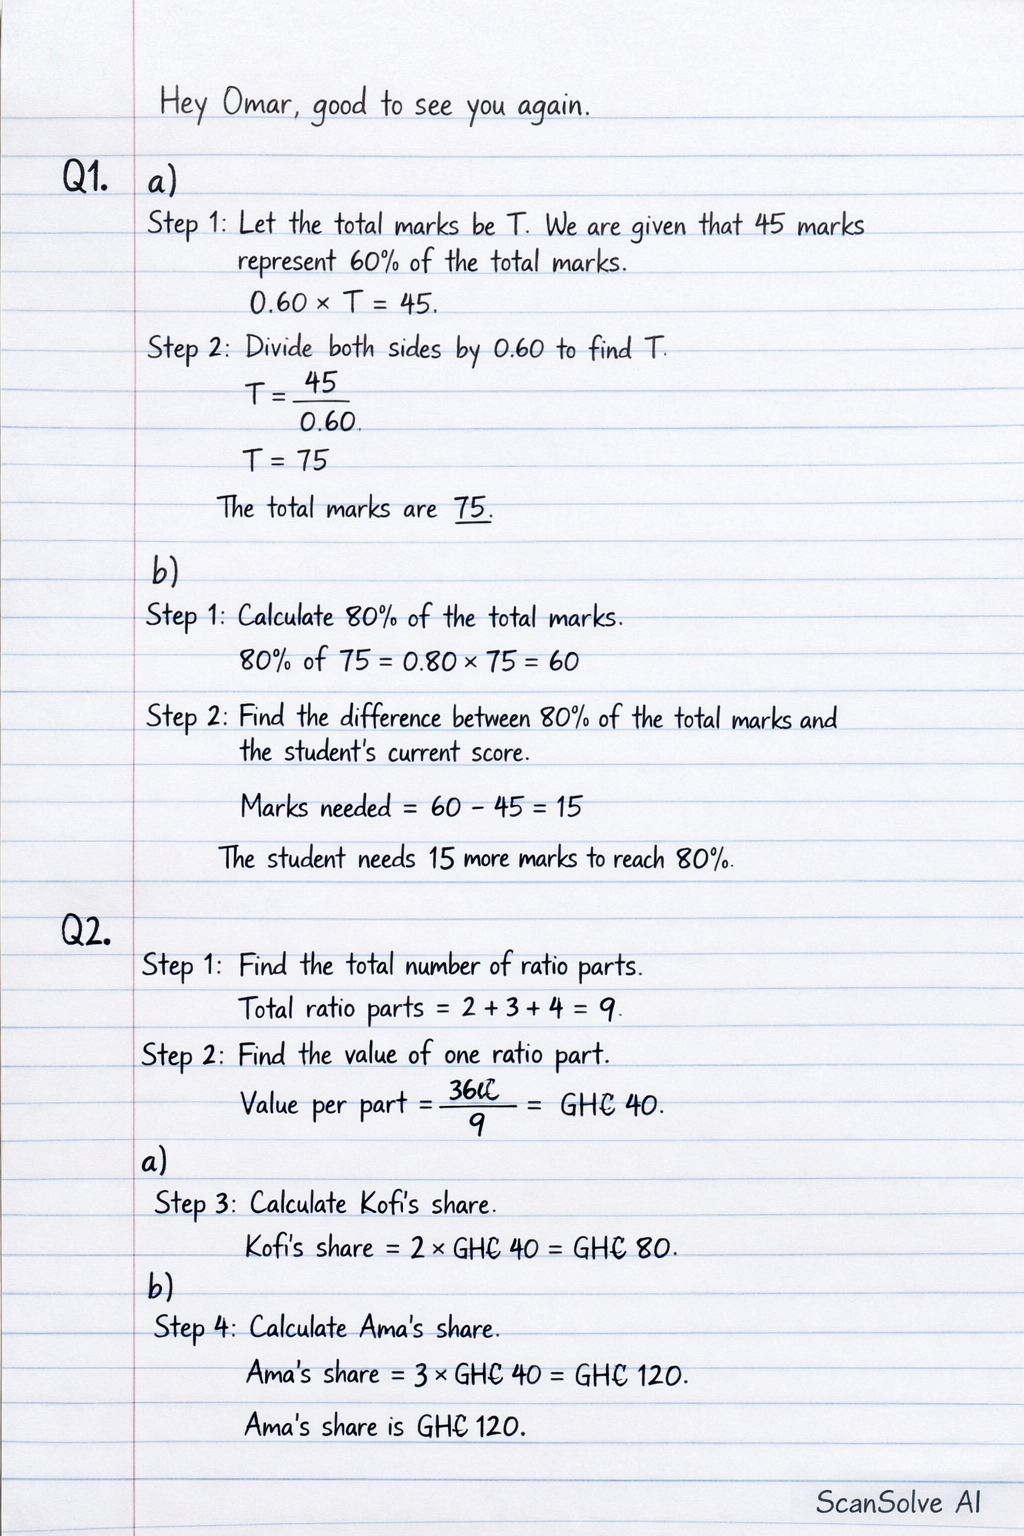 Hey Omar, good to see you again.
Q1. a)
Step 1: Let the total marks be T. We are given that 45 marks
represent 60% of the total marks.
0.60 × T = 45.
Step 2: Divide both sides by 0.60 to find T.
T = 45
0.60.
T = 75
The total marks are 75.
b)
Step 1: Calculate 80% of the total marks.
80% of 75 = 0.80 × 75 = 60
Step 2: Find the difference between 80% of the total marks and
the student's current score.
Marks needed = 60 - 45 = 15
The student needs 15 more marks to reach 80%.
Q2.
Step 1: Find the total number of ratio parts.
Total ratio parts = 2 + 3 + 4 = 9.
Step 2: Find the value of one ratio part.
Value per part = = GH₵ 40.
9
a)
Step 3: Calculate Kofi's share.
Kofi's share = 2 × GH₵ 40 = GH₵ 80.
b)
Step 4: Calculate Ama's share.
Ama's share = 3 × GH₵ 40 = GH₵ 120.
Ama's share is GH₵ 120.
ScanSolve AI